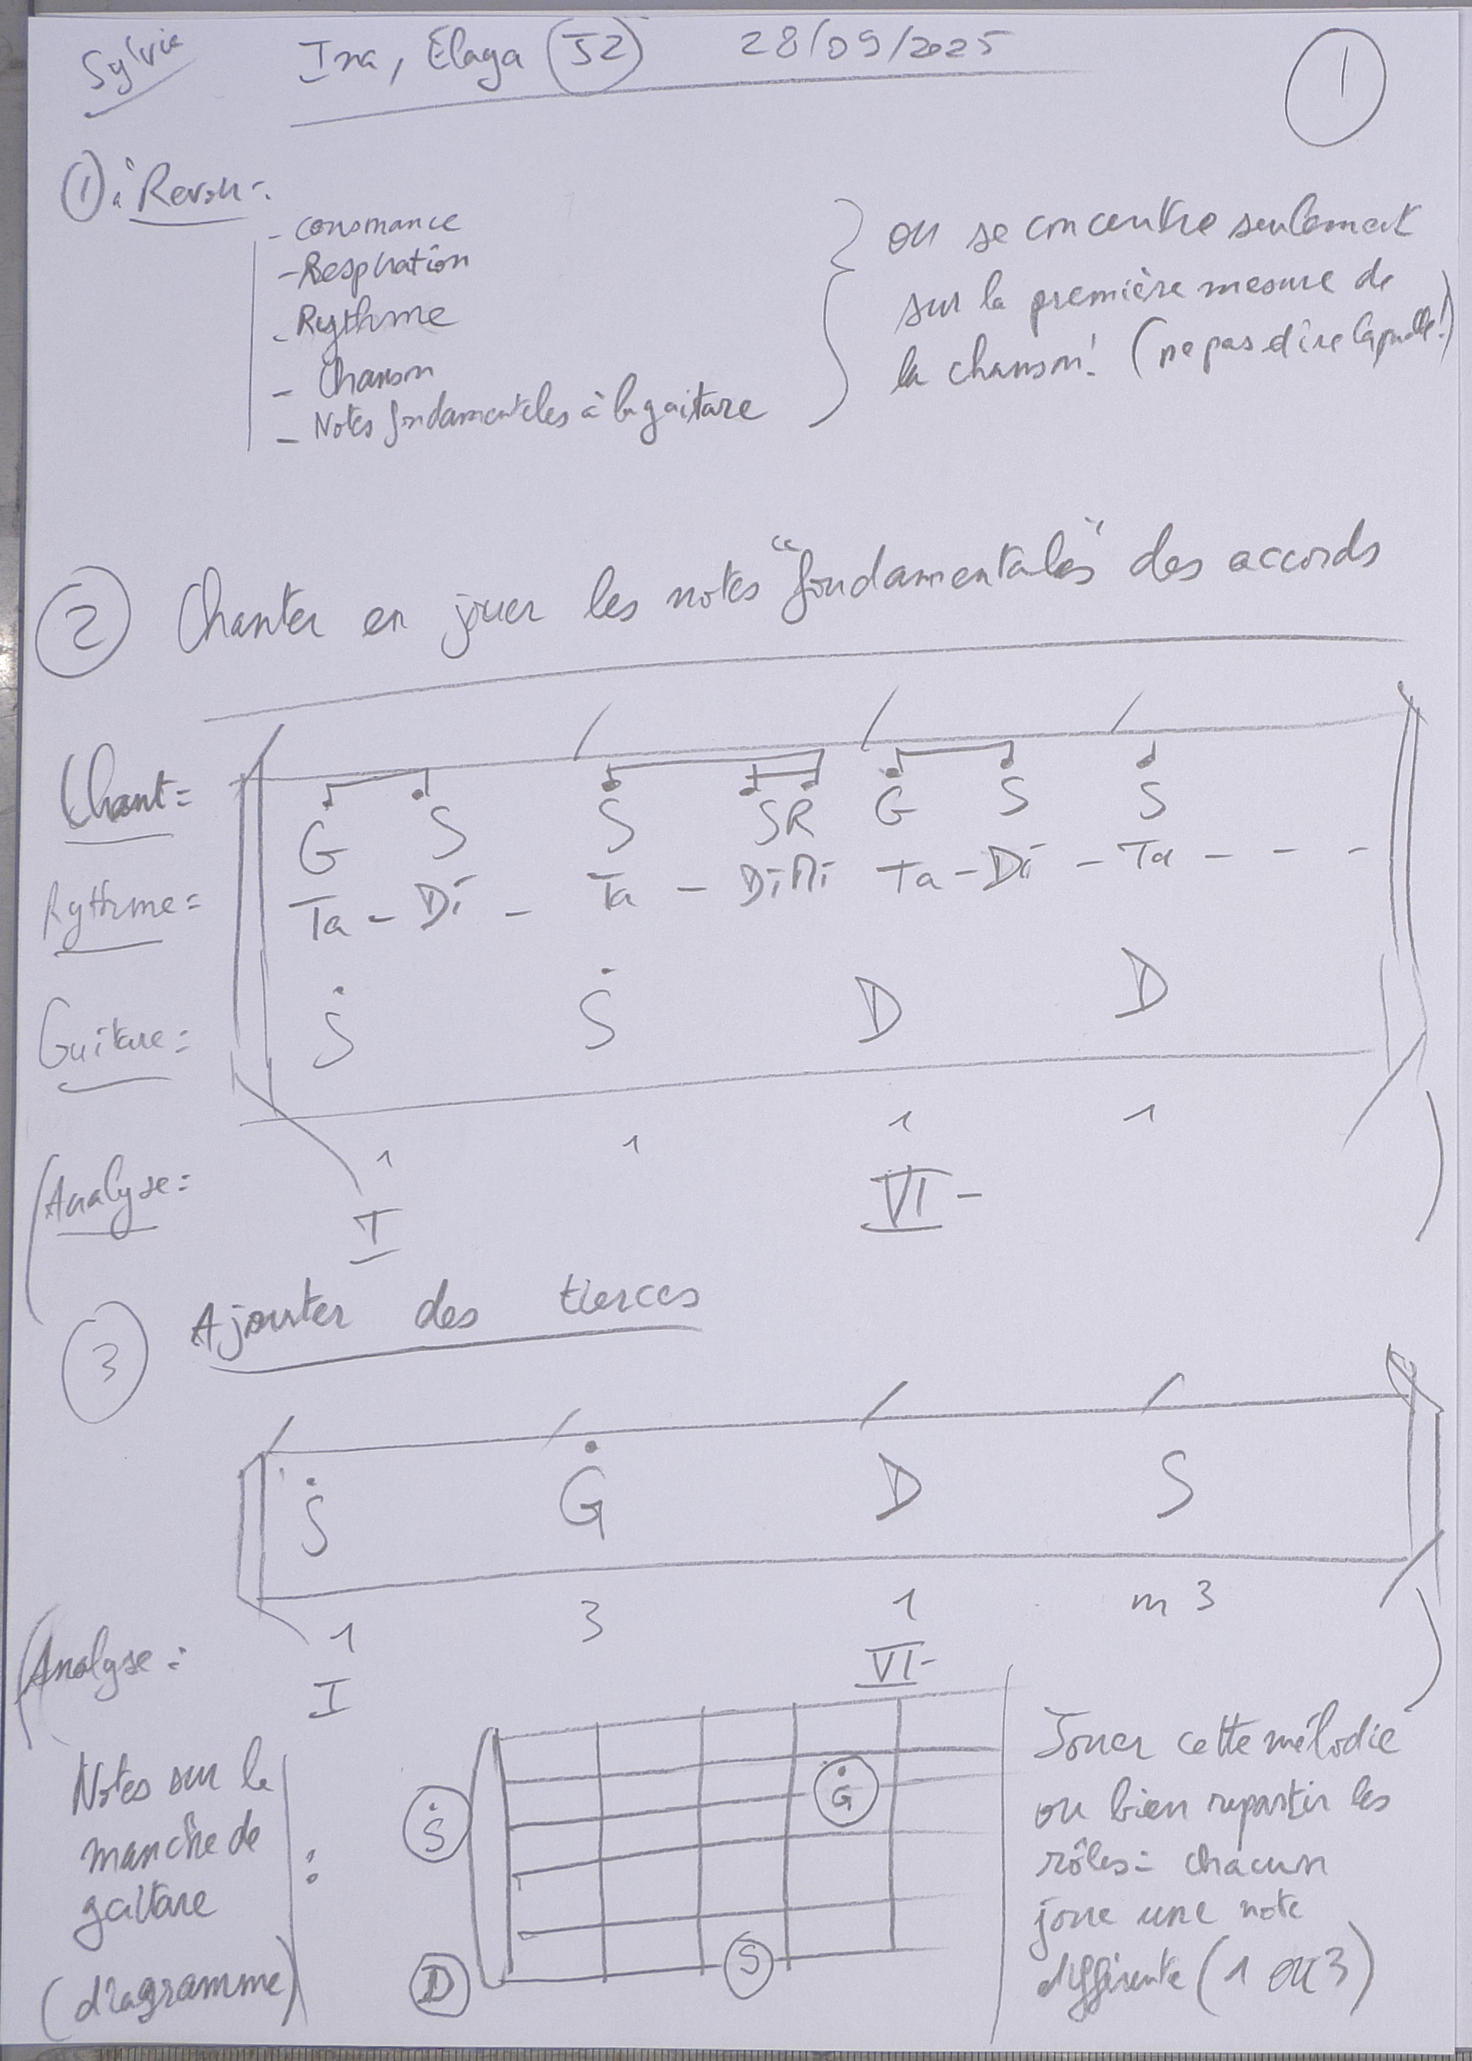 Sylvie Ina, Elaga (J2) 28/09/2025 1
① à Revoir :
- consonance
- Respiration
- Rythme
- Chanson
- Notes fondamentales à la guitare
on se concentre seulement
sur la première mesure de
la chanson! (ne pas dire laquelle!)
② Chanter en jouer les notes "fondamentales" des accords
Chant = G S S SR G S S
Rythme = Ta - Di - Ta - DiMi Ta - Di - Ta - - -
Guitare = Ṡ Ṡ D D
(Analyse = 1 1 1 1 )
I VI-
③ Ajouter des tierces
Ṡ Ġ D S
(Analyse = 1 3 1 m3 )
I VI-
Notes sur le
manche de
guitare
(diagramme) :
Ġ
Ṡ
S
D
Jouer cette mélodie
ou bien repartir les
rôles = chacun
joue une note
différente (1 ou 3)